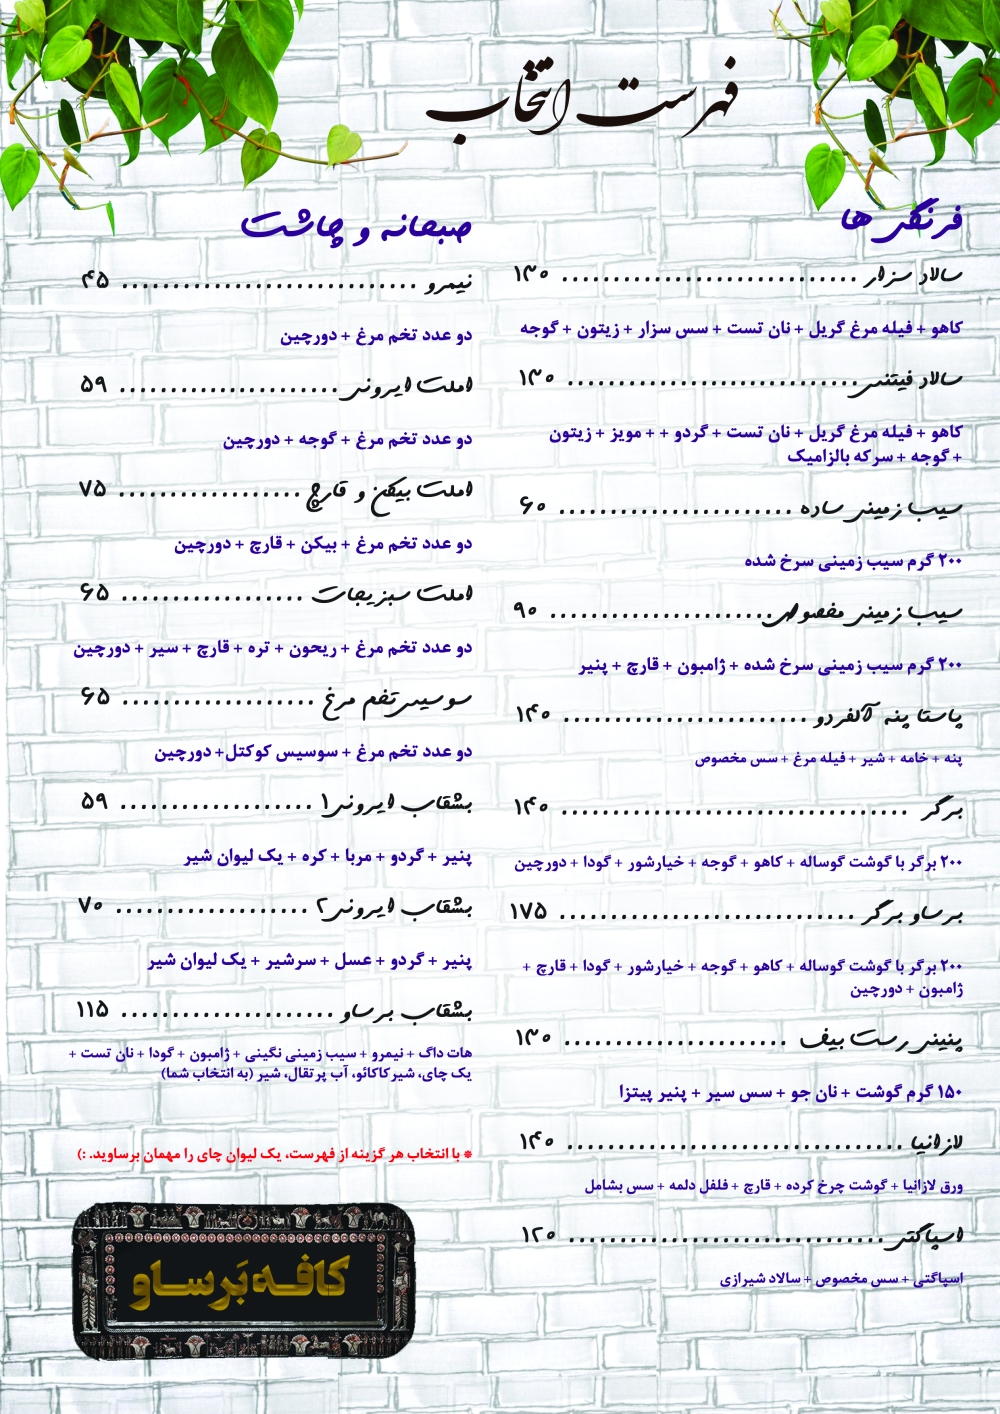 فهرست انتخاب
فرنگی ها
سالاد سزار ............................. ۱۳۰
کاهو + فیله مرغ گریل + نان تست + سس سزار + زیتون + گوجه
سالاد فیتنس ............................. ۱۳۰
کاهو + فیله مرغ گریل + نان تست + گردو + + مویز + زیتون
+ گوجه + سرکه بالزامیک
سیب زمینی ساده ....................... ۶۰
۲۰۰ گرم سیب زمینی سرخ شده
سیب زمینی مخصوص ...................... ۹۰
۲۰۰ گرم سیب زمینی سرخ شده + ژامبون + قارچ + پنیر
پاستا پنه آلفردو ........................ ۱۴۰
پنه + خامه + شیر + فیله مرغ + سس مخصوص
برگر .................................. ۱۴۰
۲۰۰ برگر با گوشت گوساله + کاهو + گوجه + خیارشور + گودا + دورچین
برساو برگر ............................. ۱۷۵
۲۰۰ برگر با گوشت گوساله + کاهو + گوجه + خیارشور + گودا + قارچ +
ژامبون + دورچین
پنینی رست بیف ...................... ۱۳۰
۱۵۰ گرم گوشت + نان جو + سس سیر + پنیر پیتزا
لازانیا ................................. ۱۴۰
ورق لازانیا + گوشت چرخ کرده + قارچ + فلفل دلمه + سس بشامل
اسپاگتی ............................... ۱۲۰
اسپاگتی + سس مخصوص + سالاد شیرازی
صبحانه و چاشت
نیمرو ............................. ۴۵
دو عدد تخم مرغ + دورچین
املت ایرونی ...................... ۵۹
دو عدد تخم مرغ + گوجه + دورچین
املت بیکن و قارچ .................. ۷۵
دو عدد تخم مرغ + بیکن + قارچ + دورچین
املت سبزیجات .................. ۶۵
دو عدد تخم مرغ + ریحون + تره + قارچ + سیر + دورچین
سوسیس تخم مرغ ................... ۶۵
دو عدد تخم مرغ + سوسیس کوکتل+ دورچین
بشقاب ایرونی۱ ................... ۵۹
پنیر + گردو + مربا + کره + یک لیوان شیر
بشقاب ایرونی۲ ................... ۷۰
پنیر + گردو + عسل + سرشیر + یک لیوان شیر
بشقاب برساو ..................... ۱۱۵
هات داگ + نیمرو + سیب زمینی نگینی + ژامبون + گودا + نان تست +
یک چای، شیرکاکائو، آب پرتقال، شیر (به انتخاب شما)
* با انتخاب هر گزینه از فهرست، یک لیوان چای را مهمان برساوید. :)
کافه بَرساو